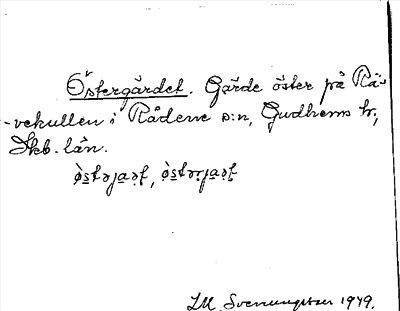 Östergärdet. Gärde öster på Rä-
-vekullen i Rådene s:n, Gudhems hr,
Skb. län.
ø̀stərja̠ṣt, ø̀stərja̠ṣt
I.M. Svenungsson 1949.